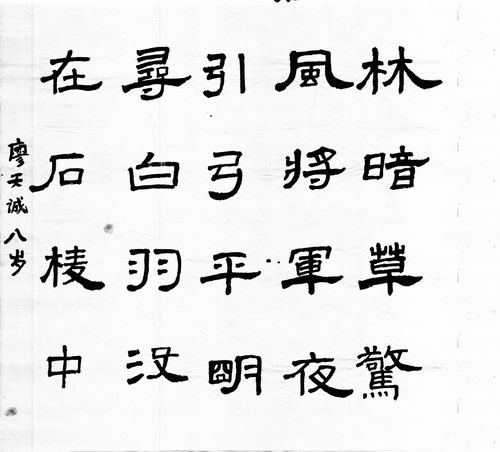 林暗草驚
風將軍夜
引弓平明
尋白羽没
在石棱中
廖天诚八岁